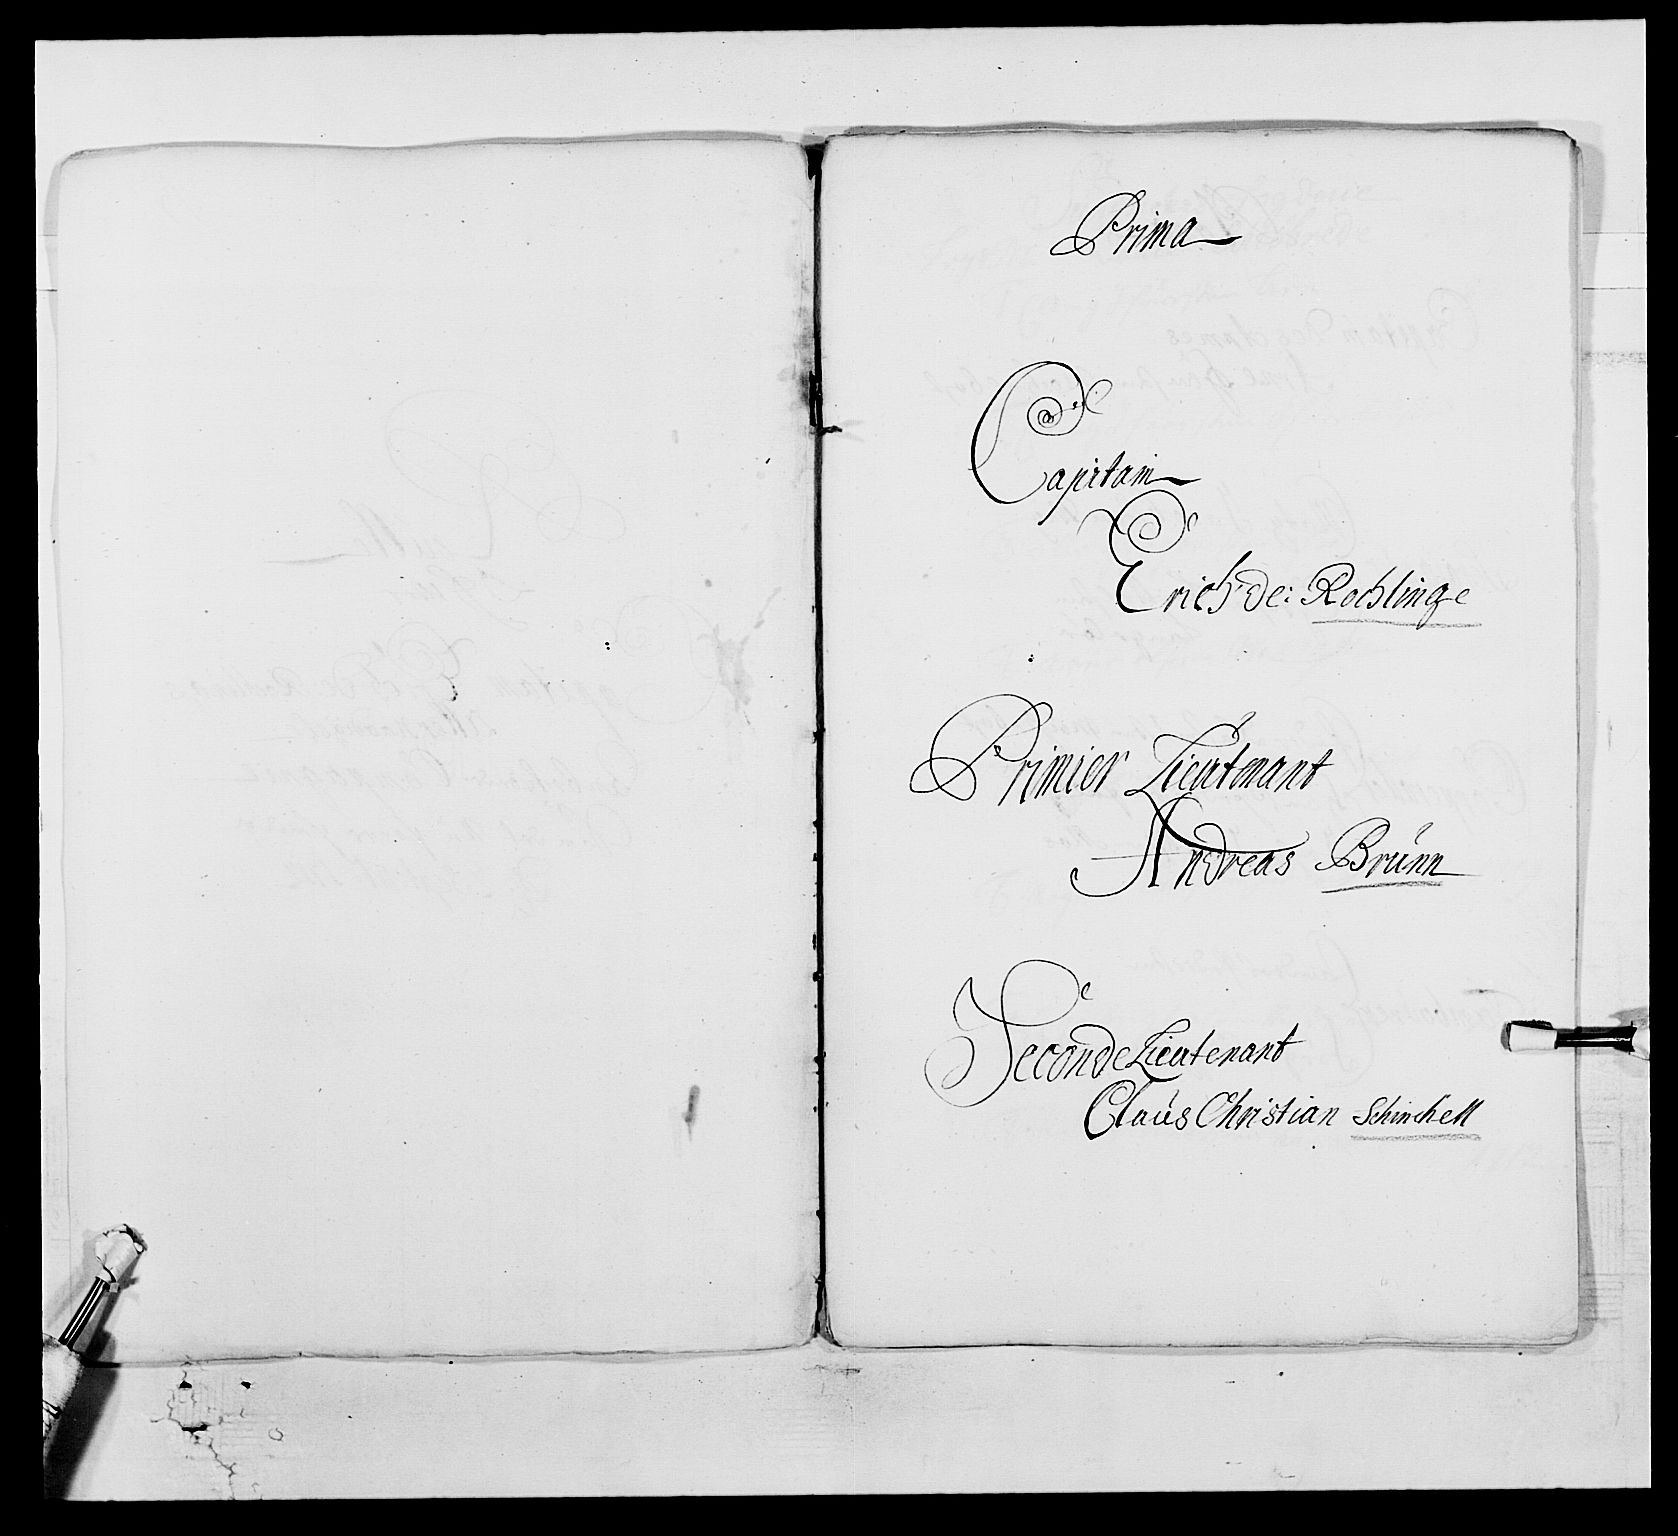 Prima
Capitain
Erich de: Rochlinge
Primier Lieutenant
Andreas Brúnn
Seconde Lieutenant
Claús Christian Schinckell